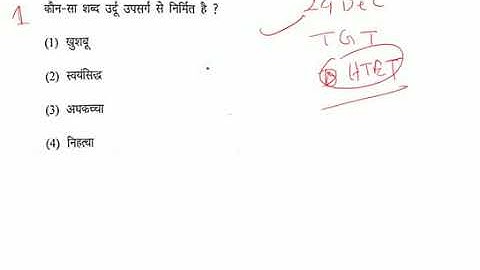 1 कौन-सा शब्द उर्दू उपसर्ग से निर्मित है ?
(1) खुशबू
(2) स्वयंसिद्ध
(3) अपकच्चा
(4) निहत्था
24 Dec
TGT
HTET